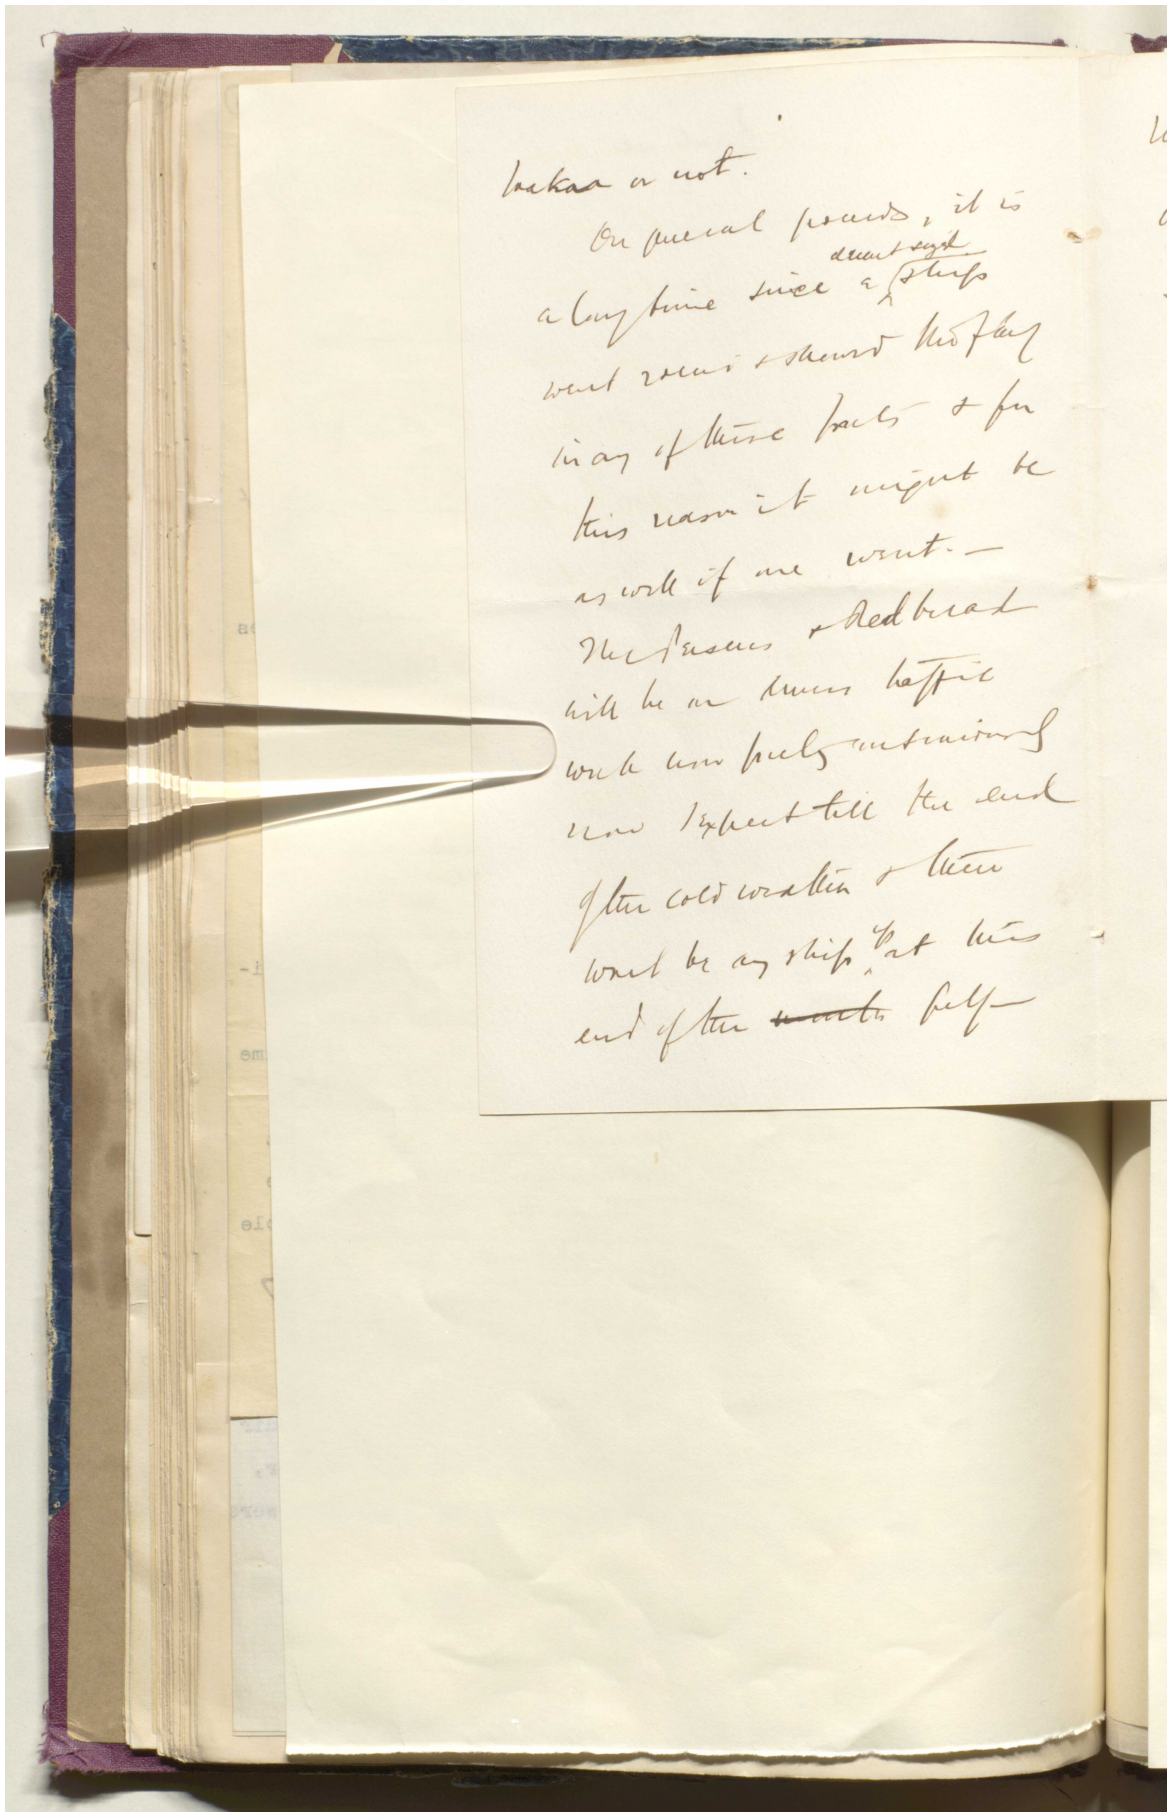 or not.
On general grounds, it is
a long time since a decent sized ship
went round & showed the flag
in any of these parts & for
this reason it might be
as well if one went. —
The Perseus & Redbreast
will be on Arms traffic
work now pretty continuously
now I expect till the end
of the cold weather & there
wont be any ship up at this
end of the Gulf —